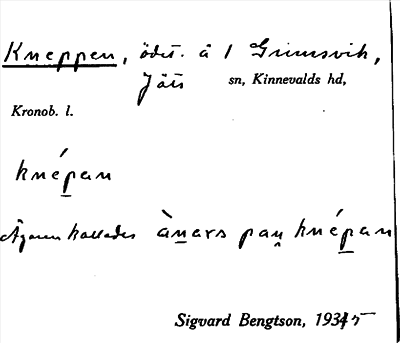 Kneppen, ödet. å 1 Grimsvik,
Jäts sn, Kinnevalds hd,
Kronob. l.
knépan
Ägaren kallades ànars pan knépan
Sigvard Bengtson, 1935